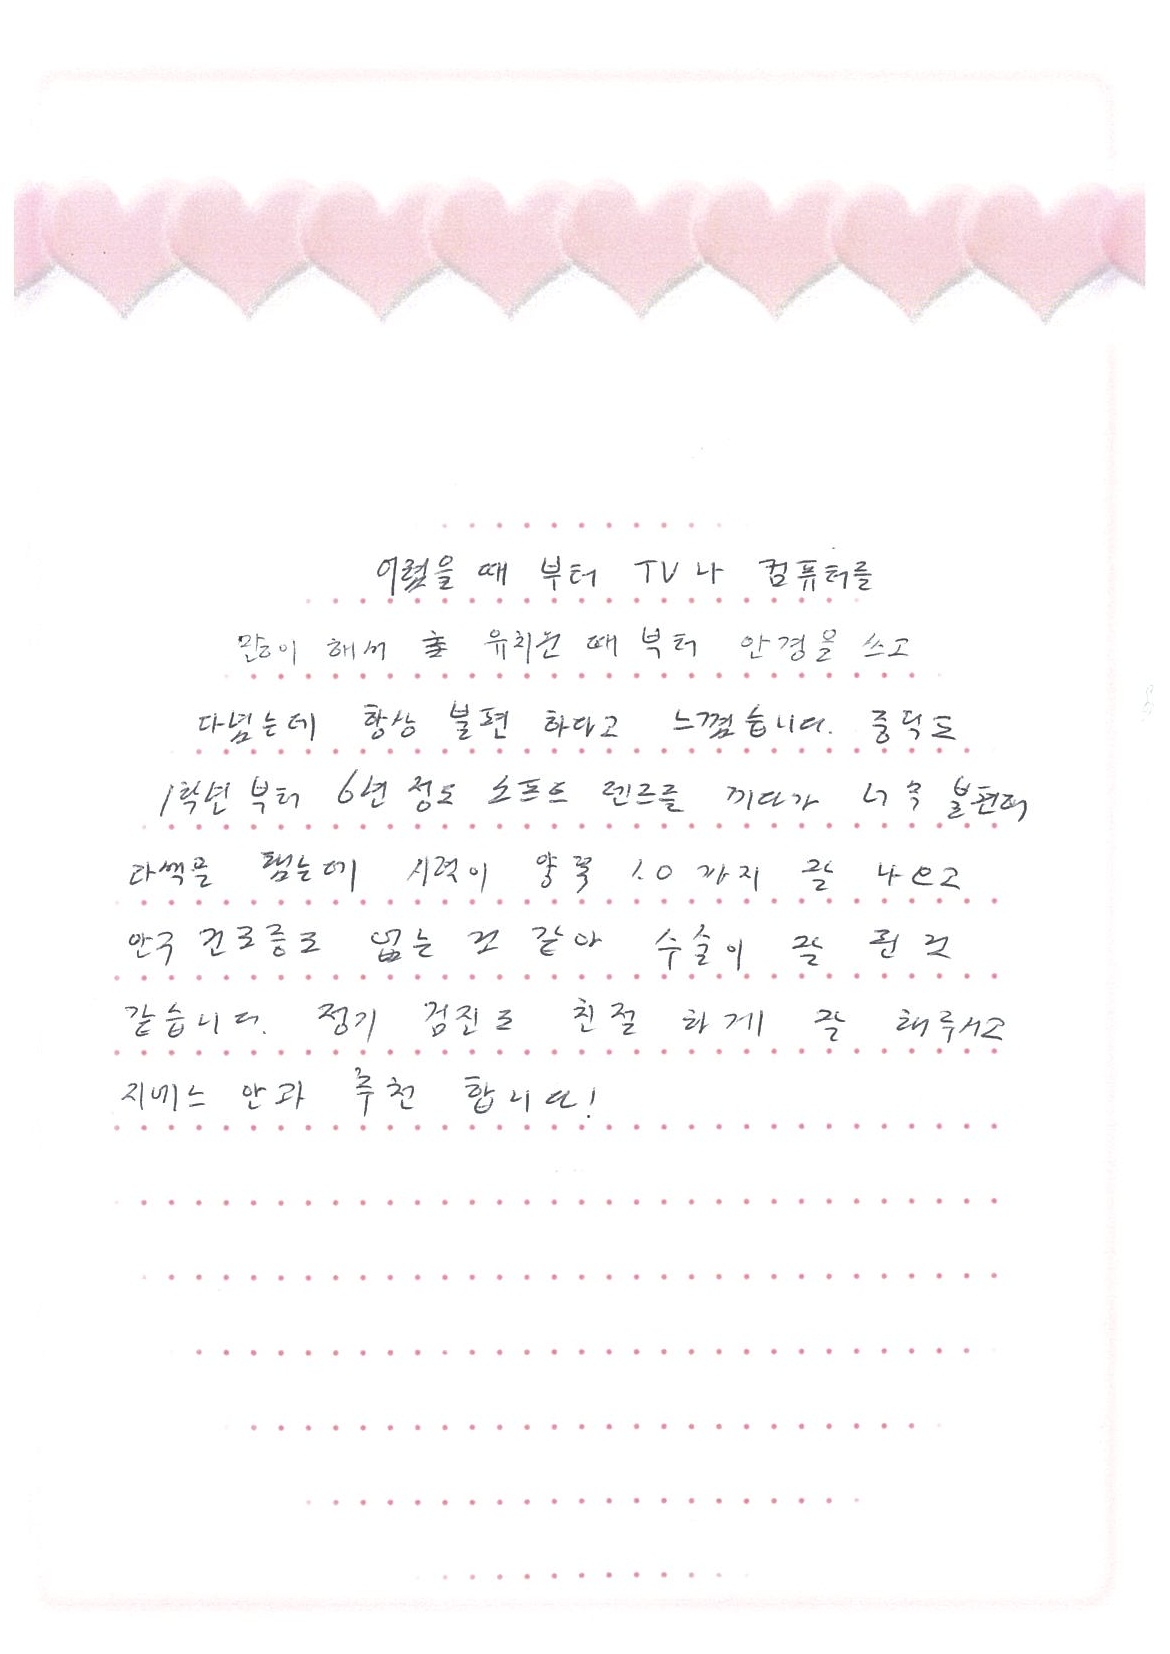 어렸을 때 부터 TV나 컴퓨터를
많이 해서 유치원 때 부터 안경을 쓰고
다녔는데 항상 불편 하다고 느꼈습니다. 중학교
1학년 부터 6년 정도 소프트 렌즈를 끼다가 너무 불편해
라섹을 했는데 시력이 양쪽 1.0 까지 잘 나오고
안구 건조증도 없는 것 같아 수술이 잘 된 것
같습니다. 정기 검진도 친절 하게 잘 해주시고
지베스 안과 추천 합니다!